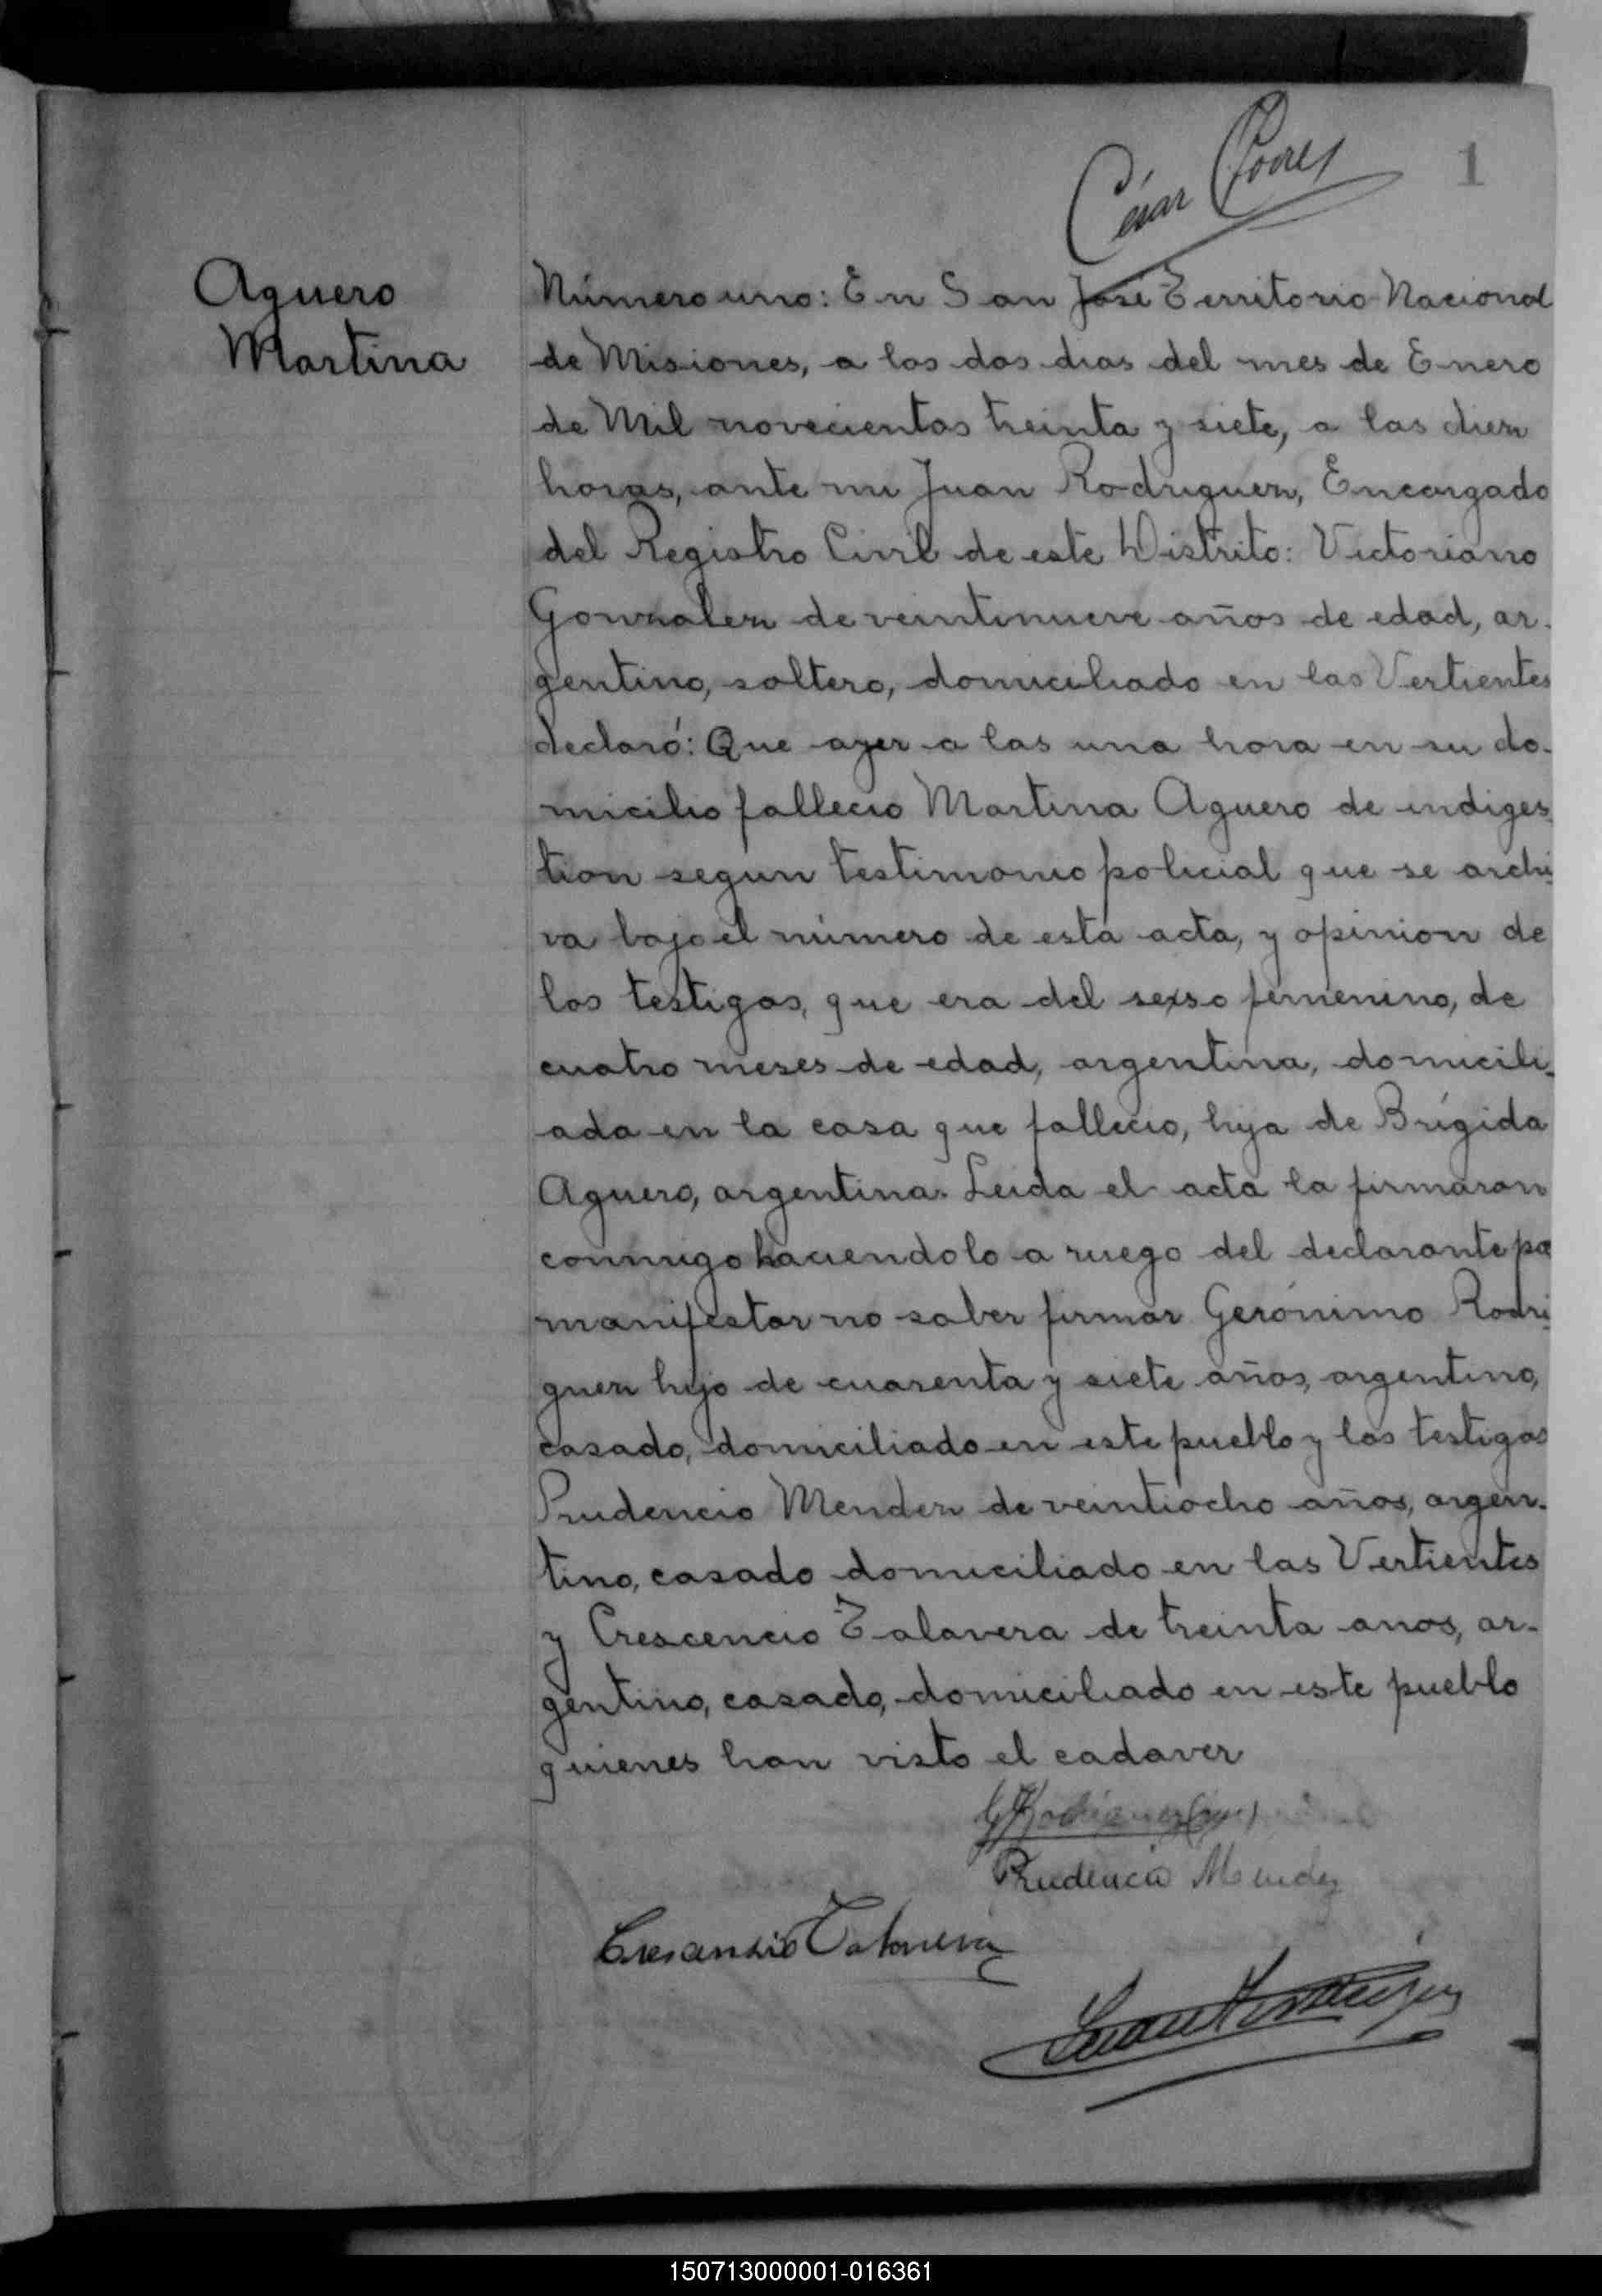 César
1
Aguero
Martina
Número uno: En San José Territorio Nacional
de Misiones, a los dos dias del mes de Enero
de Mil novecientos treinta y siete, a las diez
horas, ante mi Juan Rodriguez, Encargado
del Registro Civil de este Distrito: Victoriano
Gonzalez de veintinueve años de edad, ar-
gentino, soltero, domiciliado en las Vertientes
declaró: Que ayer a las una hora en su do-
micilio fallecio Martina Aguero de indiges-
tion segun testimonio policial que se archi-
va bajo el número de esta acta, y opinion de
los testigos, que era del sexso femenino, de
cuatro meses de edad, argentina, domicili-
ada en la casa que fallecio, hija de Brígida
Aguero, argentina. Leida el acta la firmaron
conmigo haciendolo a ruego del declarante por
manifestar no saber firmar Gerónimo Rodri-
guez hijo de cuarenta y siete años, argentino,
casado, domiciliado en este pueblo y los testigos
Prudencio Mendez de veintiocho años, argen-
tino, casado domiciliado en las Vertientes
y Crescencio Talavera de treinta anos, ar-
gentino, casado, domiciliado en este pueblo
quienes han visto el cadaver
G Rodriguez
Prudencio Mendez
Cresansio Talavera
Juan Rodriguez
150713000001-016361